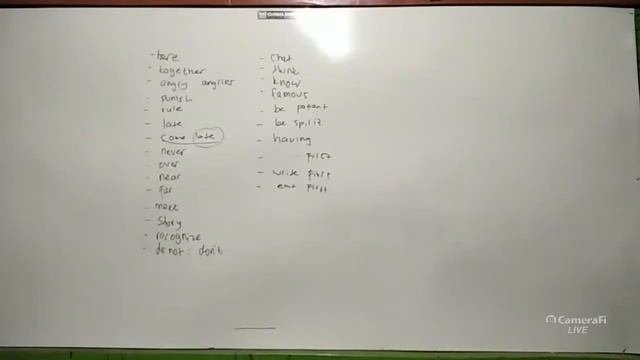 - together
- angry angrier
- punish
- rule
- late
- come late
- never
- over
- near
- far
- meet
- story
- recognize
- do not : don't
- chat
- think
- know
- famous
- be patient
- be
- having
- first
- write first
- eat first
CameraFi
LIVE